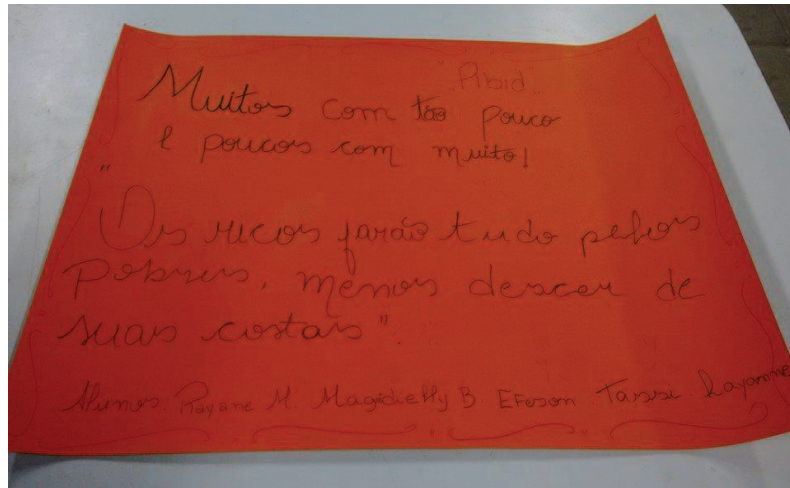 "Pibid"
Muitos com tão pouco
e poucos com muito!
"Os ricos farão tudo pelos
Pobres, menos descer de
suas costas".
Alunos Rayane M. Magidielly B. Efeson Tassi Rayanne